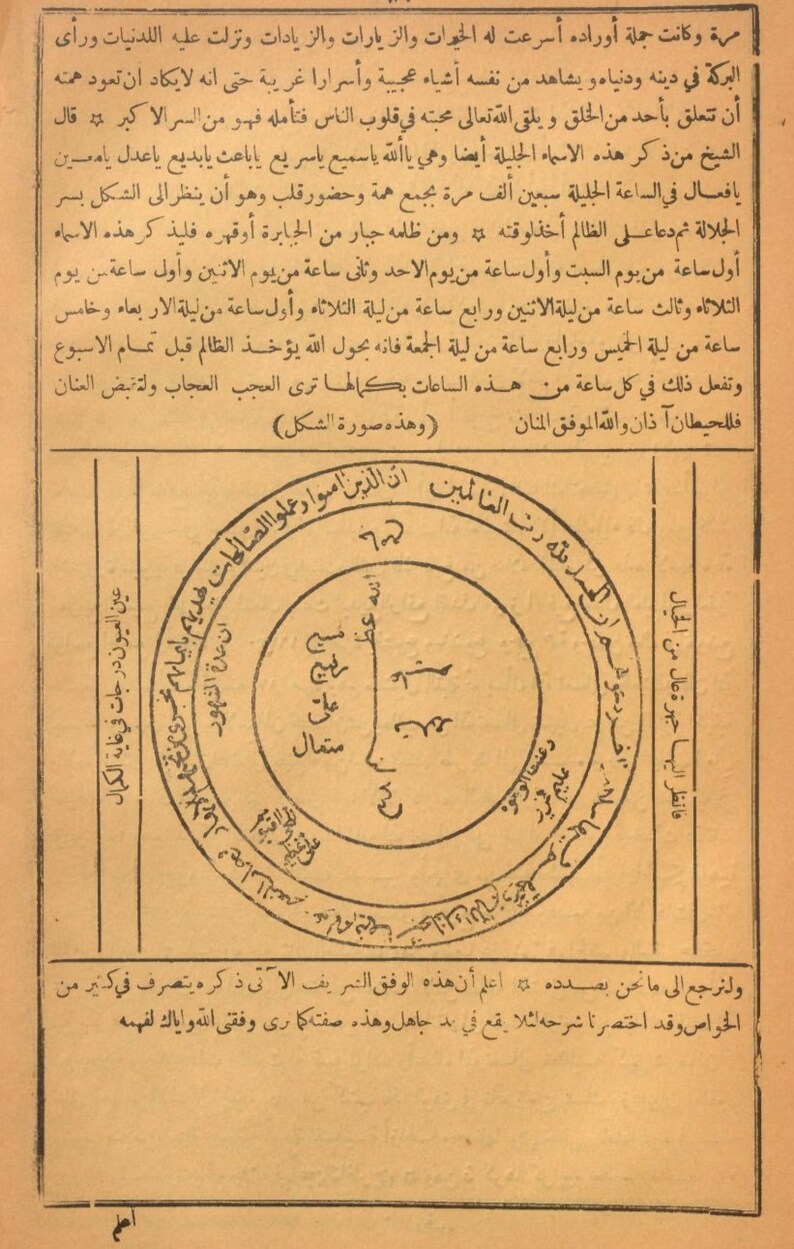 مرة وكانت جملة أوراده أسرعت له الخيرات والزيارات والزيادات ونزلت عليه اللدنيات ورأى
البركة في دينه ودنياه ويشاهد من نفسه أشياء عجيبة وأسرارا غريبة حتى انه لايكاد ان تعود همته
أن تتعلق بأحد من الخلق ويلقى الله تعالى محبته في قلوب الناس فتأمله فهو من السر الاكبر ☼ قال
الشيخ من ذكر هذه الاسماء الجليلة أيضا وهي ياألله ياسميع ياسريع ياباعث يابديع ياعدل يامعين
يافعال في الساعة الجليلة سبعين ألف مرة بجمع همة وحضور قلب وهو أن ينظر الى الشكل بسر
الجلالة ثم دعا على الظالم أخذ لوقته ☼ ومن ظلمه جبار من الجبابرة أو قهره فليذكر هذه الاسماء
أول ساعة من يوم السبت وأول ساعة من يوم الاحد وثانى ساعة من يوم الاثنين وأول ساعة من يوم
الثلاثاء وثالث ساعة من ليلة الاثنين ورابع ساعة من ليلة الثلاثاء وأول ساعة من ليلة الاربعاء وخامس
ساعة من ليلة الخميس ورابع ساعة من ليلة الجمعة فانه بحول الله يؤخذ الظالم قبل تمام الاسبوع
وتفعل ذلك في كل ساعة من هذه الساعات بكمالها ترى العجب العجاب ولتقبض العنان
فللحيطان آذان والله الموفق المنان (وهذه صورة الشكل)
ان الذين امنوا وعملوا الصالحات يهديهم بايمانهم تجري من تحتهم الانهار
واخر دعواهم ان الحمد لله رب العالمين
ان عدة الشهور
وعنت الوجوه
الله
مثقال
فانظر اليها جهرة عال من الخيال
عين العيون درجات في غاية الكمال
ولنرجع الى ما نحن بصدده ☼ اعلم أن هذه الوفق الشريف الآتى ذكره يتصرف في كثير من
الخواص وقد اختصرنا شرحه لئلا يقع في يد جاهل وهذه صفته كما ترى وفقنى الله واياك لفهمه
اعلم